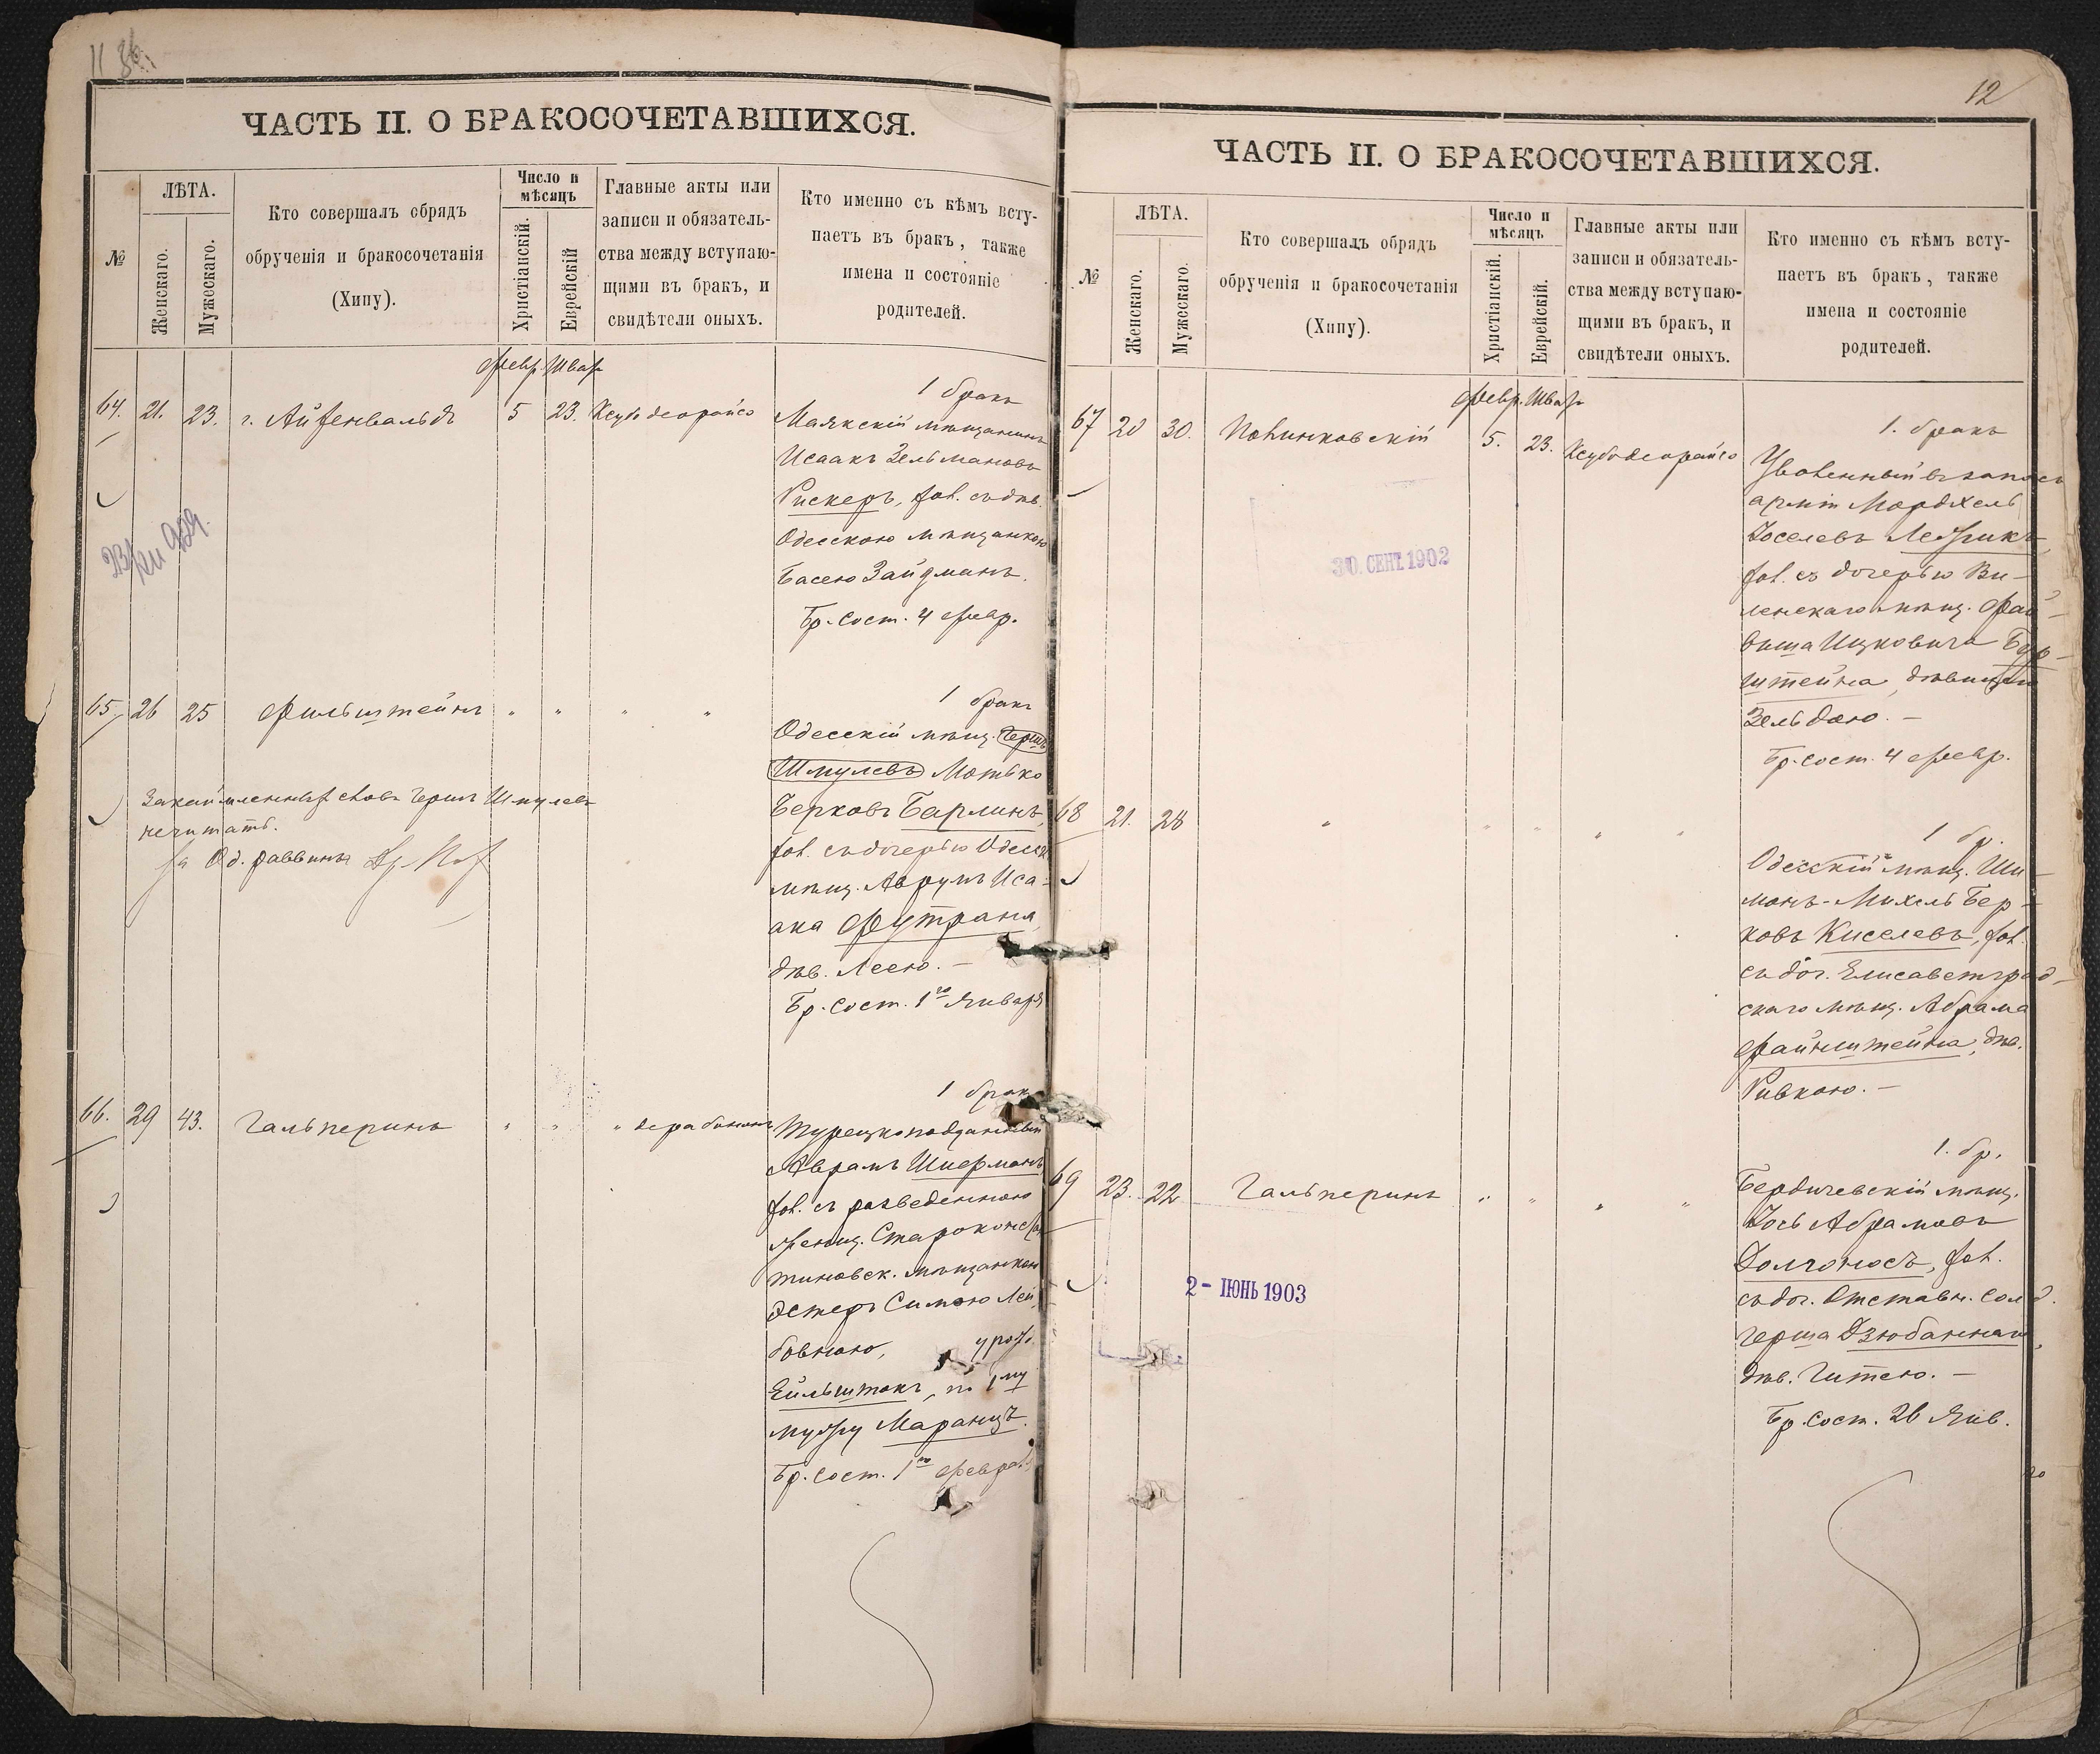 11
ЧАСТЬ II. О БРАКОСОЧЕТАВШИХСЯ.
№
ЛѢТА.
Женскаго.
Мужескаго.
Кто совершалъ обрядъ
обрученія и бракосочетанія
(Хипу).
Число и
мѣсяцъ
Христіанскій.
Еврейскій
Главные акты или
записи и обязатель-
ства между вступаю-
щими въ бракъ, и
свидѣтели оныхъ.
Кто именно съ кѣмъ всту-
паетъ въ бракъ, также
имена и состояніе
родителей.
Февр. Шват
64. 21. 23. г. Айзенвальдъ 5 23. Ксубо деорайсо
1 бракъ
Маякскій мѣщанинъ
Исаакъ Зельмановъ
Рискеръ, хол. съ дѣв.
Одесскою мѣщанкою
Басею Зайдманъ.
Бр. сост. 4 Февр.
65. 26 25 Фильштейнъ " " " "
1 бракъ
Одесскій мѣщ. Герш
Шмулевъ Мотько
Берковъ Барлинъ,
хол. съ дочерью Одесск
мѣщ. Аврумъ Иса-
ака Футрана,
дѣв. Леею. —
Бр. сост. 1го Января
Закаймленныхъ словъ Герш Шмулевъ
нечитать.
За Од. раввина
66. 29 43. Гальперинъ " " " дерабонон
1 бракъ
Турецкоподданный
Аврамъ Шиерманъ,
хол. съ разведенною
женщ. Староконстан
тиновск. мѣщанкою
Эстеръ Симою Лей
бовною, урож.
Ейльштокъ, по 1му
мужу Маранцъ.
Бр. сост. 1го Феврал
12
ЧАСТЬ II. О БРАКОСОЧЕТАВШИХСЯ.
№
ЛѢТА.
Женскаго.
Мужескаго.
Кто совершалъ обрядъ
обрученія и бракосочетанія
(Хипу).
Число и
мѣсяцъ
Христіанскій.
Еврейскій.
Главные акты или
записи и обязатель-
ства между вступаю-
щими въ бракъ, и
свидѣтели оныхъ.
Кто именно съ кѣмъ всту-
паетъ въ бракъ, также
имена и состояніе
родителей.
Февр. Шват
67 20 30. Полинковскій 5. 23. Ксубо деорайсо
1. бракъ
Уволенный въ запасъ
арміи Мордхель
Іоселевъ Лефикъ,
хол. съ дочерью Ви-
ленскаго мѣщ. Фай-
виша Ицковича Бур-
штейна, дѣвицею
Зельдою. —
Бр. сост. 4 Февр.
30. СЕНТ. 1902
68 21. 28 " " " " "
1 бр.
Одесскій мѣщ. Ши-
монъ-Михель Бер-
ковъ Киселевъ, хол.
съ доч. Елисаветград-
скаго мѣщ. Абрама
Файнштейна, дѣв.
Ривкою. —
69 23. 22 Гальперинъ " " " "
1. бр.
Бердичевскій мѣщ.
Іось Абрамовъ
Долгоносъ, хол.
съ доч. Отставн. солд.
Герша Дзюбаннаш,
дѣв. Гитею. —
Бр. сост. 26 Янв.
2 - ІЮНЬ 1903